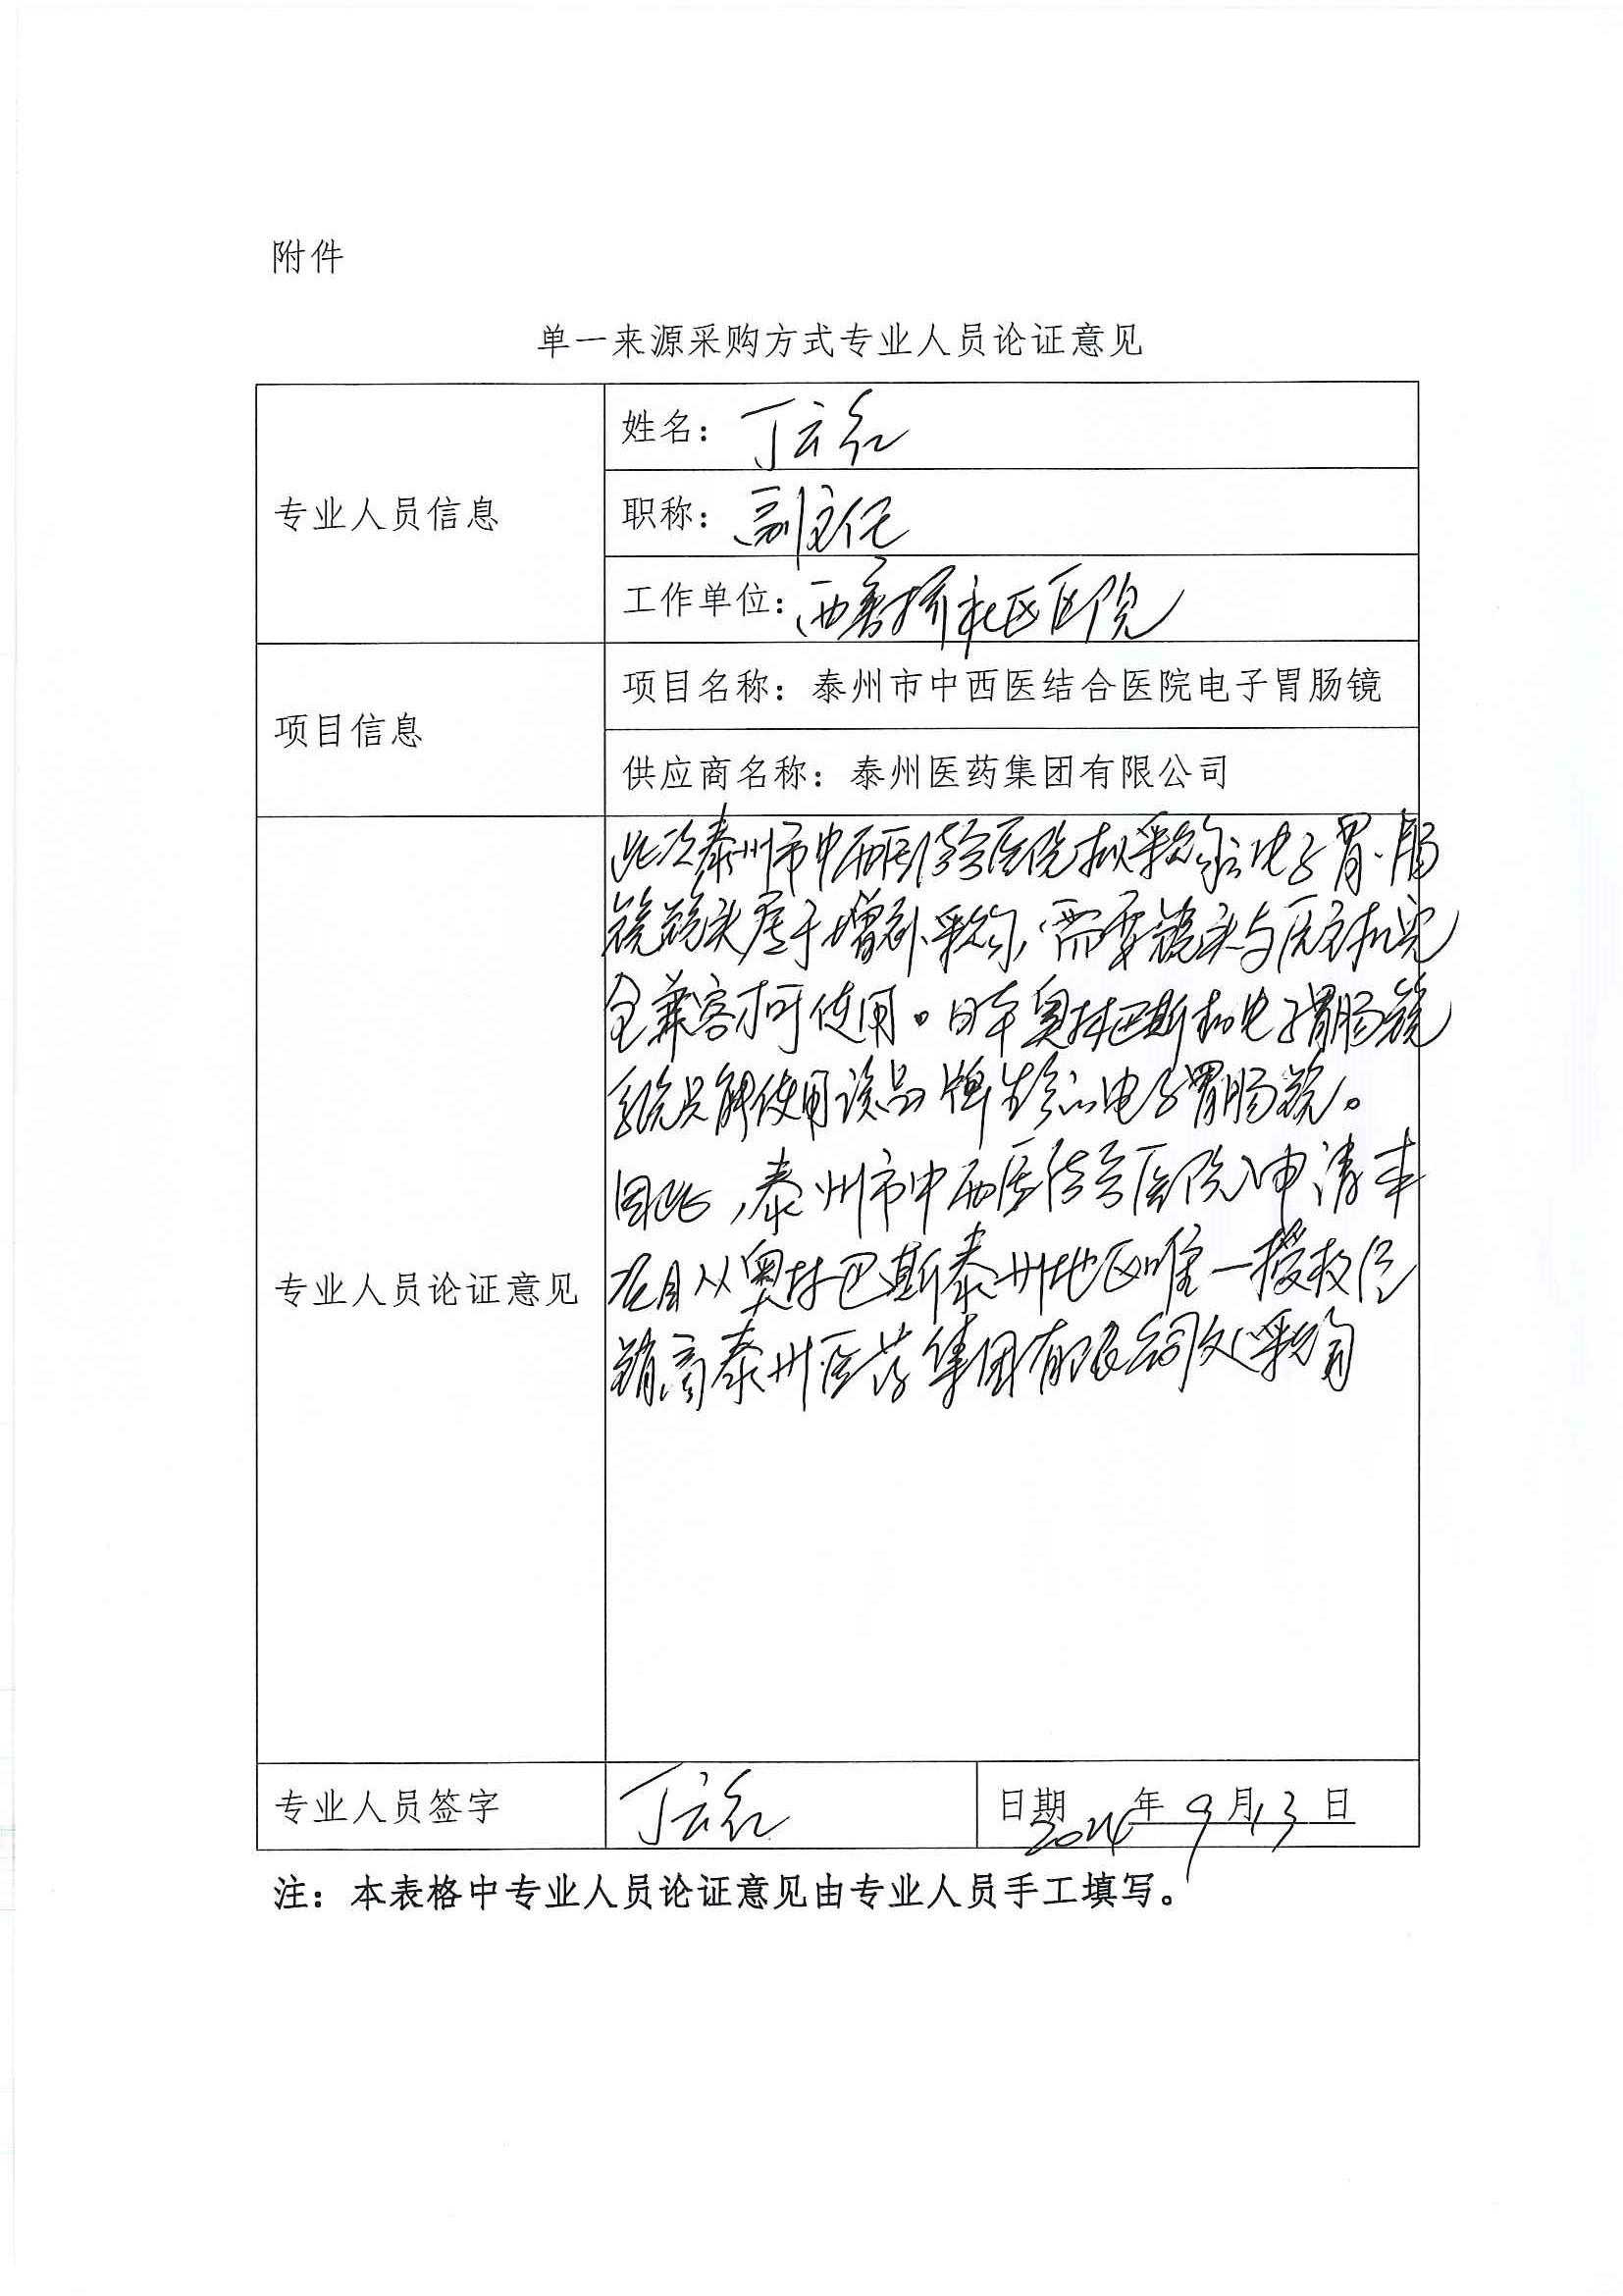 附件
单一来源采购方式专业人员论证意见
专业人员信息
姓名：丁云红
职称：副主任
工作单位：西 桥社区医院
项目信息
项目名称：泰州市中西医结合医院电子胃肠镜
供应商名称：泰州医药集团有限公司
专业人员论证意见
此次泰州市中西医结合医院拟采购的电子胃、肠
镜镜头属于增补采购，需要镜头与原主机完
全兼容才可使用。日本奥林巴斯的电子胃肠镜
系统只能使用该品牌生产的电子胃肠镜。
因此，泰州市中西医结合医院申请本
项目从奥林巴斯泰州地区唯一授权经
销商泰州医药集团有限公司处采购
专业人员签字
丁云红
日期 2024年9月13日
注：本表格中专业人员论证意见由专业人员手工填写。